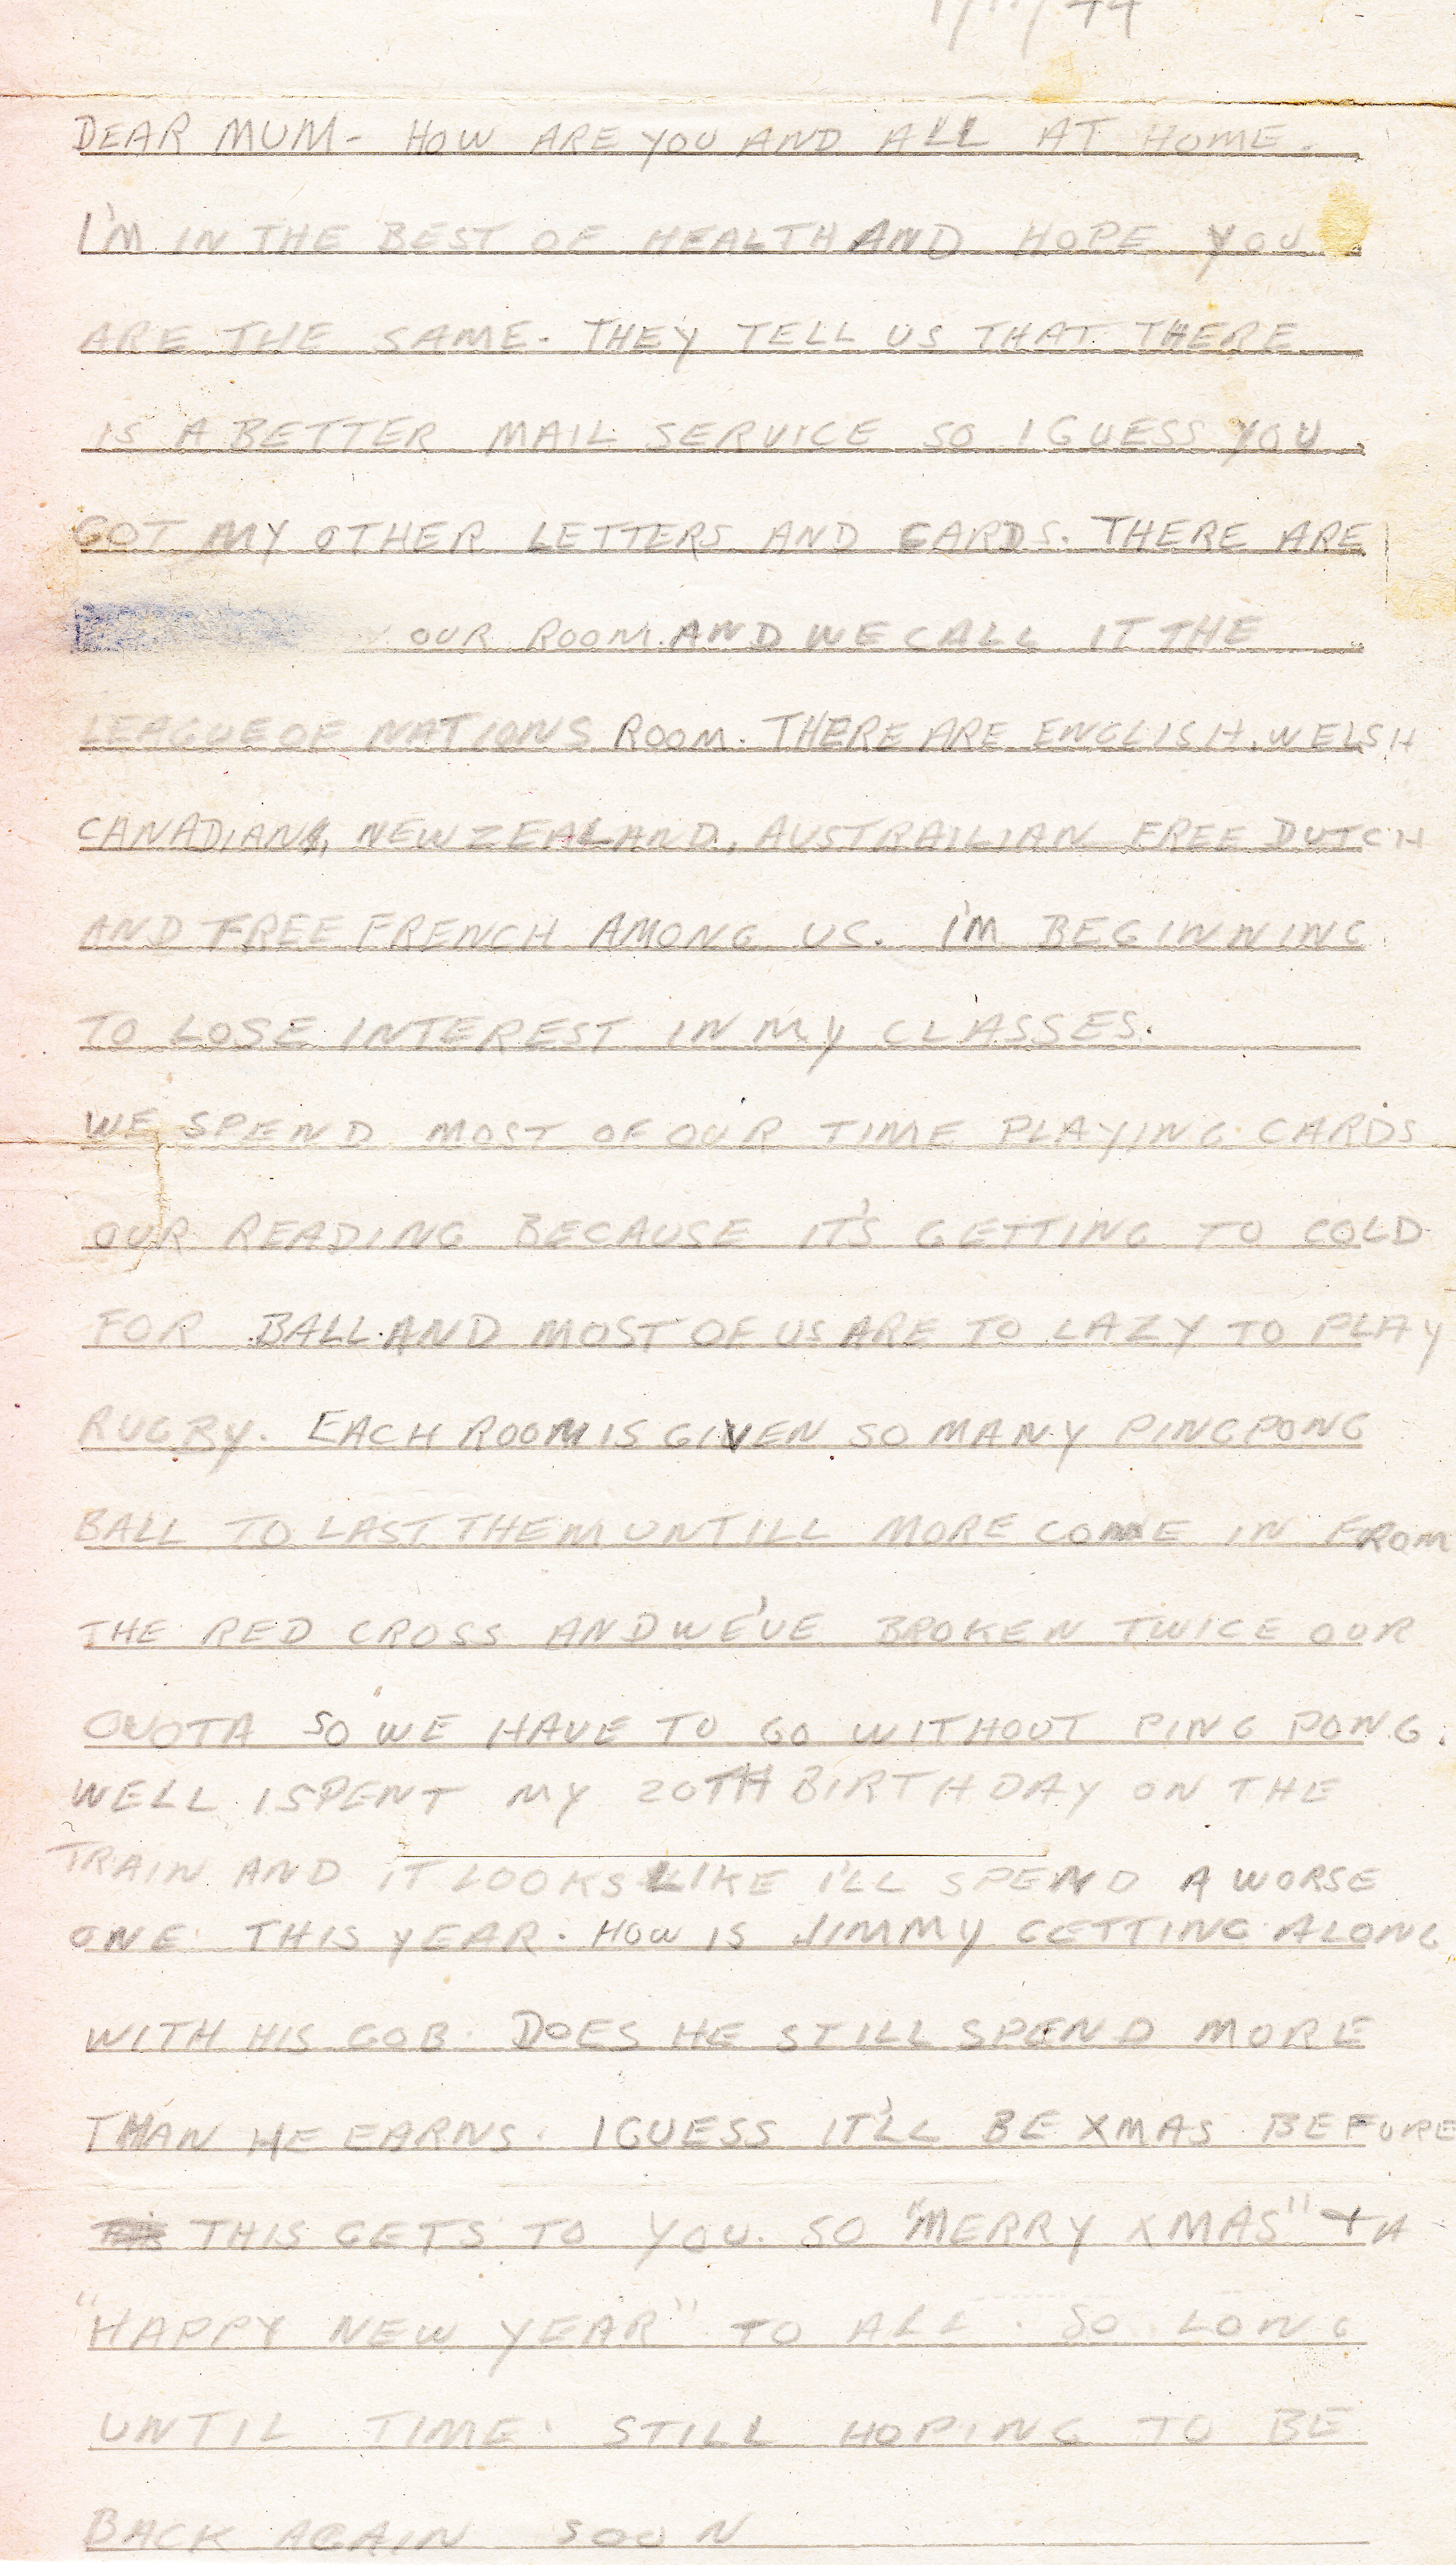 DEAR MUM - HOW ARE YOU AND ALL AT HOME.
I'M IN THE BEST OF HEALTH AND HOPE YOU
ARE THE SAME. THEY TELL US THAT THERE
IS A BETTER MAIL SERVICE SO I GUESS YOU
GOT MY OTHER LETTERS AND CARDS. THERE ARE
OUR ROOM. AND WE CALL IT THE
LEAGUE OF NATIONS ROOM. THERE ARE ENGLISH, WELSH
CANADIANS, NEW ZEALAND, AUSTRAILIAN FREE DUTCH
AND FREE FRENCH AMONG US. I'M BEGINNING
TO LOSE INTEREST IN MY CLASSES.
WE SPEND MOST OF OUR TIME PLAYING CARDS
OUR READING BECAUSE IT'S GETTING TO COLD
FOR BALL AND MOST OF US ARE TO LAZY TO PLAY
RUGBY. EACH ROOM IS GIVEN SO MANY PING PONG
BALL TO LAST THEM UNTILL MORE COME IN FROM
THE RED CROSS AND WE'VE BROKEN TWICE OUR
QUOTA SO WE HAVE TO GO WITHOUT PING PONG.
WELL I SPENT MY 20TH BIRTHDAY ON THE
TRAIN AND IT LOOKS LIKE I'LL SPEND A WORSE
ONE THIS YEAR. HOW IS JIMMY GETTING ALONG
WITH HIS GOB. DOES HE STILL SPEND MORE
THAN HE EARNS. I GUESS IT'LL BE XMAS BEFORE
THIS GETS TO YOU. SO "MERRY XMAS" + A
"HAPPY NEW YEAR" TO ALL. SO LONG
UNTIL TIME. STILL HOPING TO BE
BACK AGAIN SOON